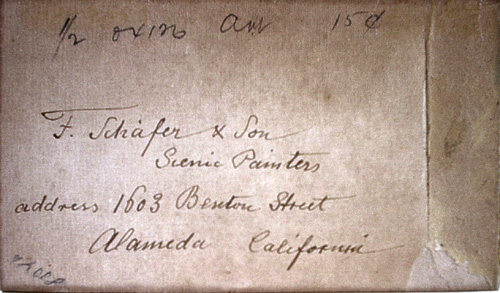 1/2 15¢
F. Schäfer & Son
Scenic Painters
address 1603 Benton Street
Alameda California